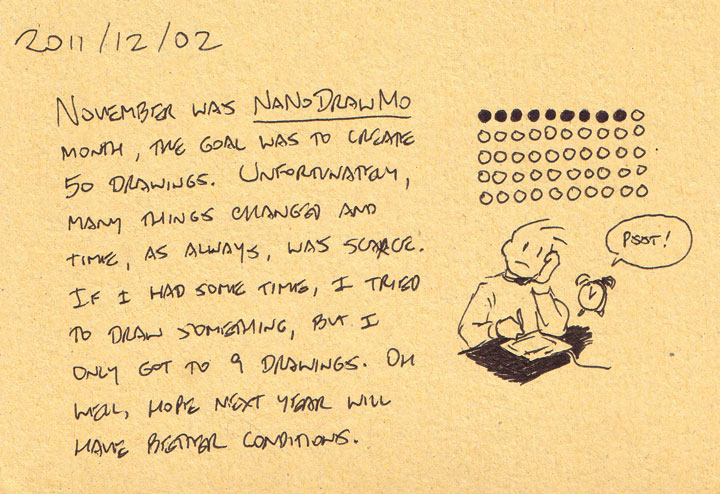 2011/12/02
NOVEMBER WAS NANODRAWMO
MONTH, THE GOAL WAS TO CREATE
50 DRAWINGS. UNFORTUNATELY,
MANY THINGS CHANGED AND
TIME, AS ALWAYS, WAS SCARCE.
IF I HAD SOME TIME, I TRIED
TO DRAW SOMETHING, BUT I
ONLY GOT TO 9 DRAWINGS. OH
WELL, HOPE NEXT YEAR WILL
HAVE BETTER CONDITIONS.
PSST!